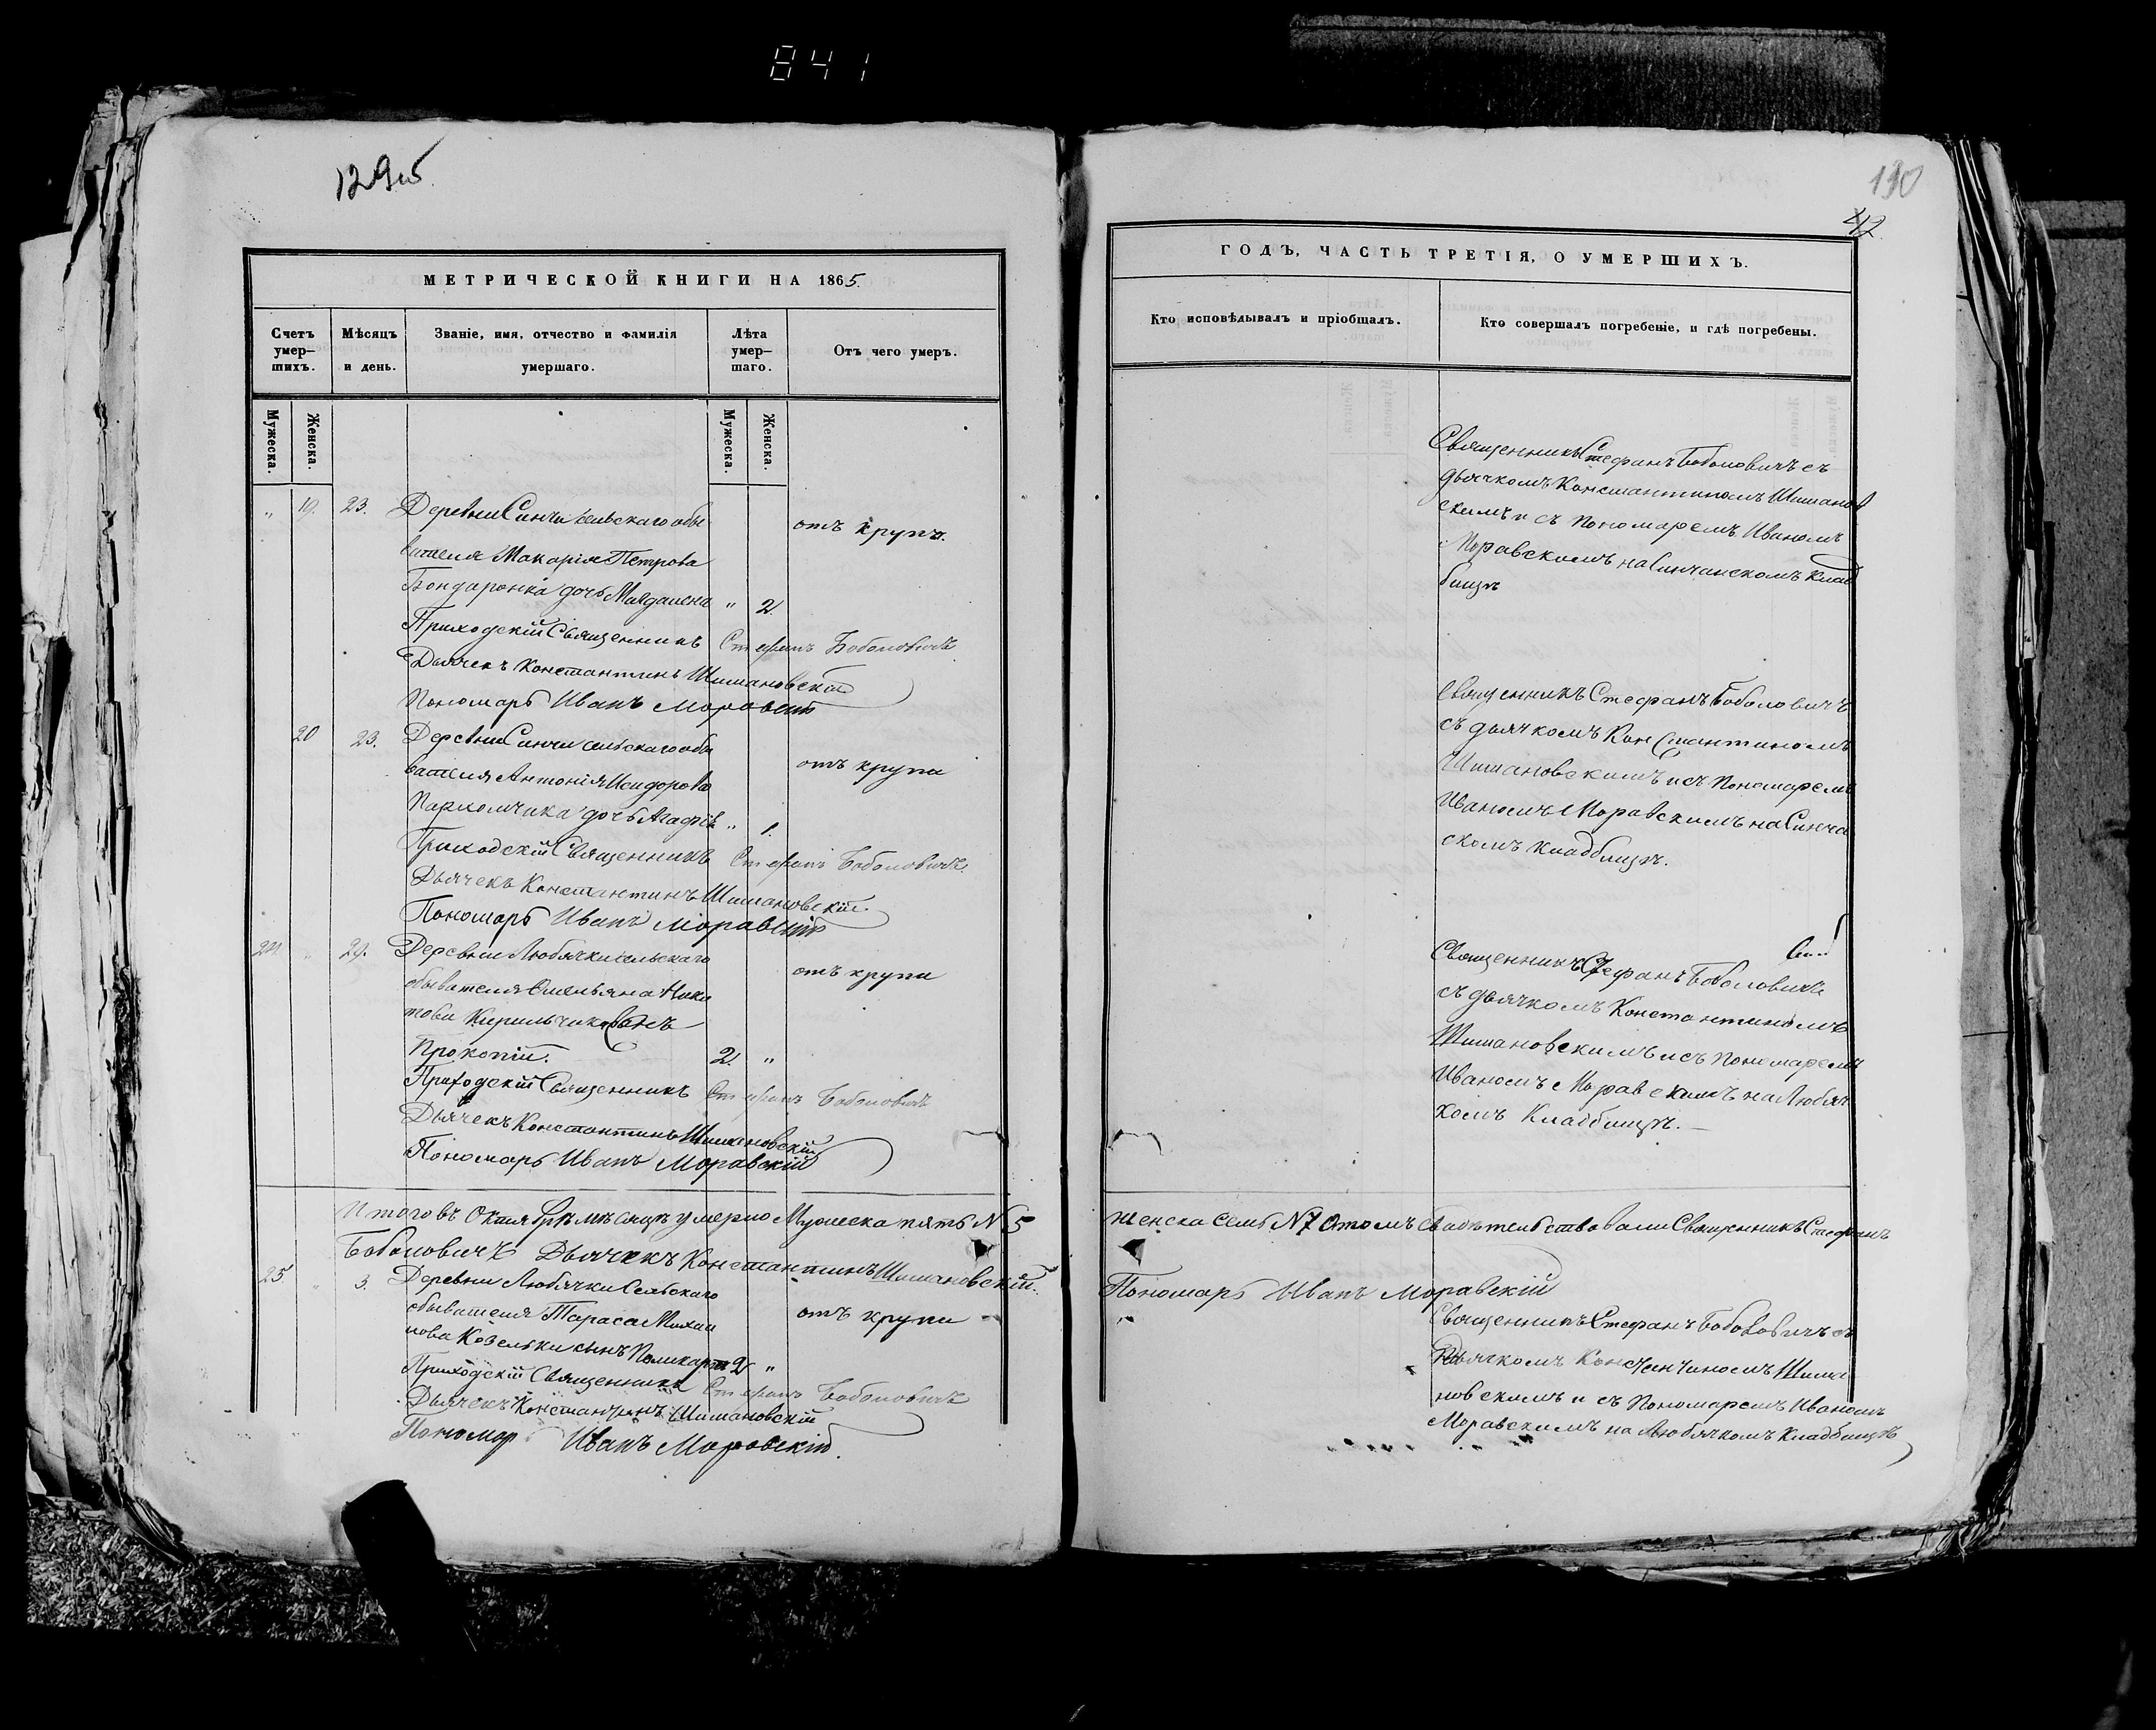 841
129об
МЕТРИЧЕСКОЙ КНИГИ НА 1865.
Счетъ умер-
шихъ.
Мѣсяцъ
и день.
Званіе, имя, отчество и фамилія
умершаго.
Лѣта
умер-
шаго.
Отъ чего умеръ.
Мужеска.
Женска.
Мужеска.
Женска.
„ 19. 23. Деревни Синчи сельскаго обы отъ крупа.
вателя Макарія Петрова
Бондаронка дочь Магдалена „ 2.
Приходскій Священникъ Стефанъ Боболовичъ
Дьячекъ Константинъ Шимановскій
Пономарь Иванъ Моравскій
20 23. Деревни Синчи сельскаго обы
вателя Антонія Исидорова отъ крупа
Пархомчика дочь Агафія „ 1.
Приходскій Священникъ Стефанъ Боболовичъ
Дьячекъ Константинъ Шимановскій
Пономарь Иванъ Моравскій
24 „ 29. Деревни Любячки сельскаго отъ крупа
обывателя Омельяна Ники
това Кирильчика сынъ
Прокопій. 2. „
Приходскій Священникъ Стефанъ Боболовичъ
Дьячекъ Константинъ Шимановскій
Пономарь Иванъ Моравскій
Итого въ Октябрѣ мѣсяцѣ умерло Мужеска пять N 5
Боболовичъ Дьячекъ Константинъ Шимановскій.
25 „ 3. Деревни Любячки Сельскаго
обывателя Тараса Михаи отъ крупа
лова Козельки сынъ Поликарпъ 2 „
Приходскій Священникъ Стефанъ Боболовичъ
Дьячекъ Константинъ Шимановскій
Пономар Иванъ Моравскій.
130
42
ГОДЪ, ЧАСТЬ ТРЕТІЯ, О УМЕРШИХЪ.
Кто исповѣдывалъ и пріобщалъ.
Кто совершалъ погребеніе, и гдѣ погребены.
Священникъ Стефанъ Боболовичъ съ
дьячкомъ Константиномъ Шиманов
скимъ и съ Пономаремъ Иваномъ
Моравскимъ на Синчанскомъ Клад
бищѣ
Священникъ Стефанъ Боболовичъ
съ дьячкомъ Константиномъ
Шимановскимъ и съ Пономаремъ
Иваномъ Моравскимъ на Синча
скомъ кладбищѣ.
Священникъ Стефанъ Боболовичъ
съ дьячкомъ Константиномъ
Шимановскимъ и съ Пономаремъ
Иваномъ Моравскимъ на Любяч
комъ Кладбищѣ.
женска Семь N 7 О томъ свидѣтельствовали Священникъ Стефанъ
Пономарь Иванъ Моравскій
Священникъ Стефанъ Боболовичъ съ
Дьячкомъ Константиномъ Шима
новскимъ и съ Пономаремъ Иваномъ
Моравскимъ на Любячкомъ Кладбищѣ